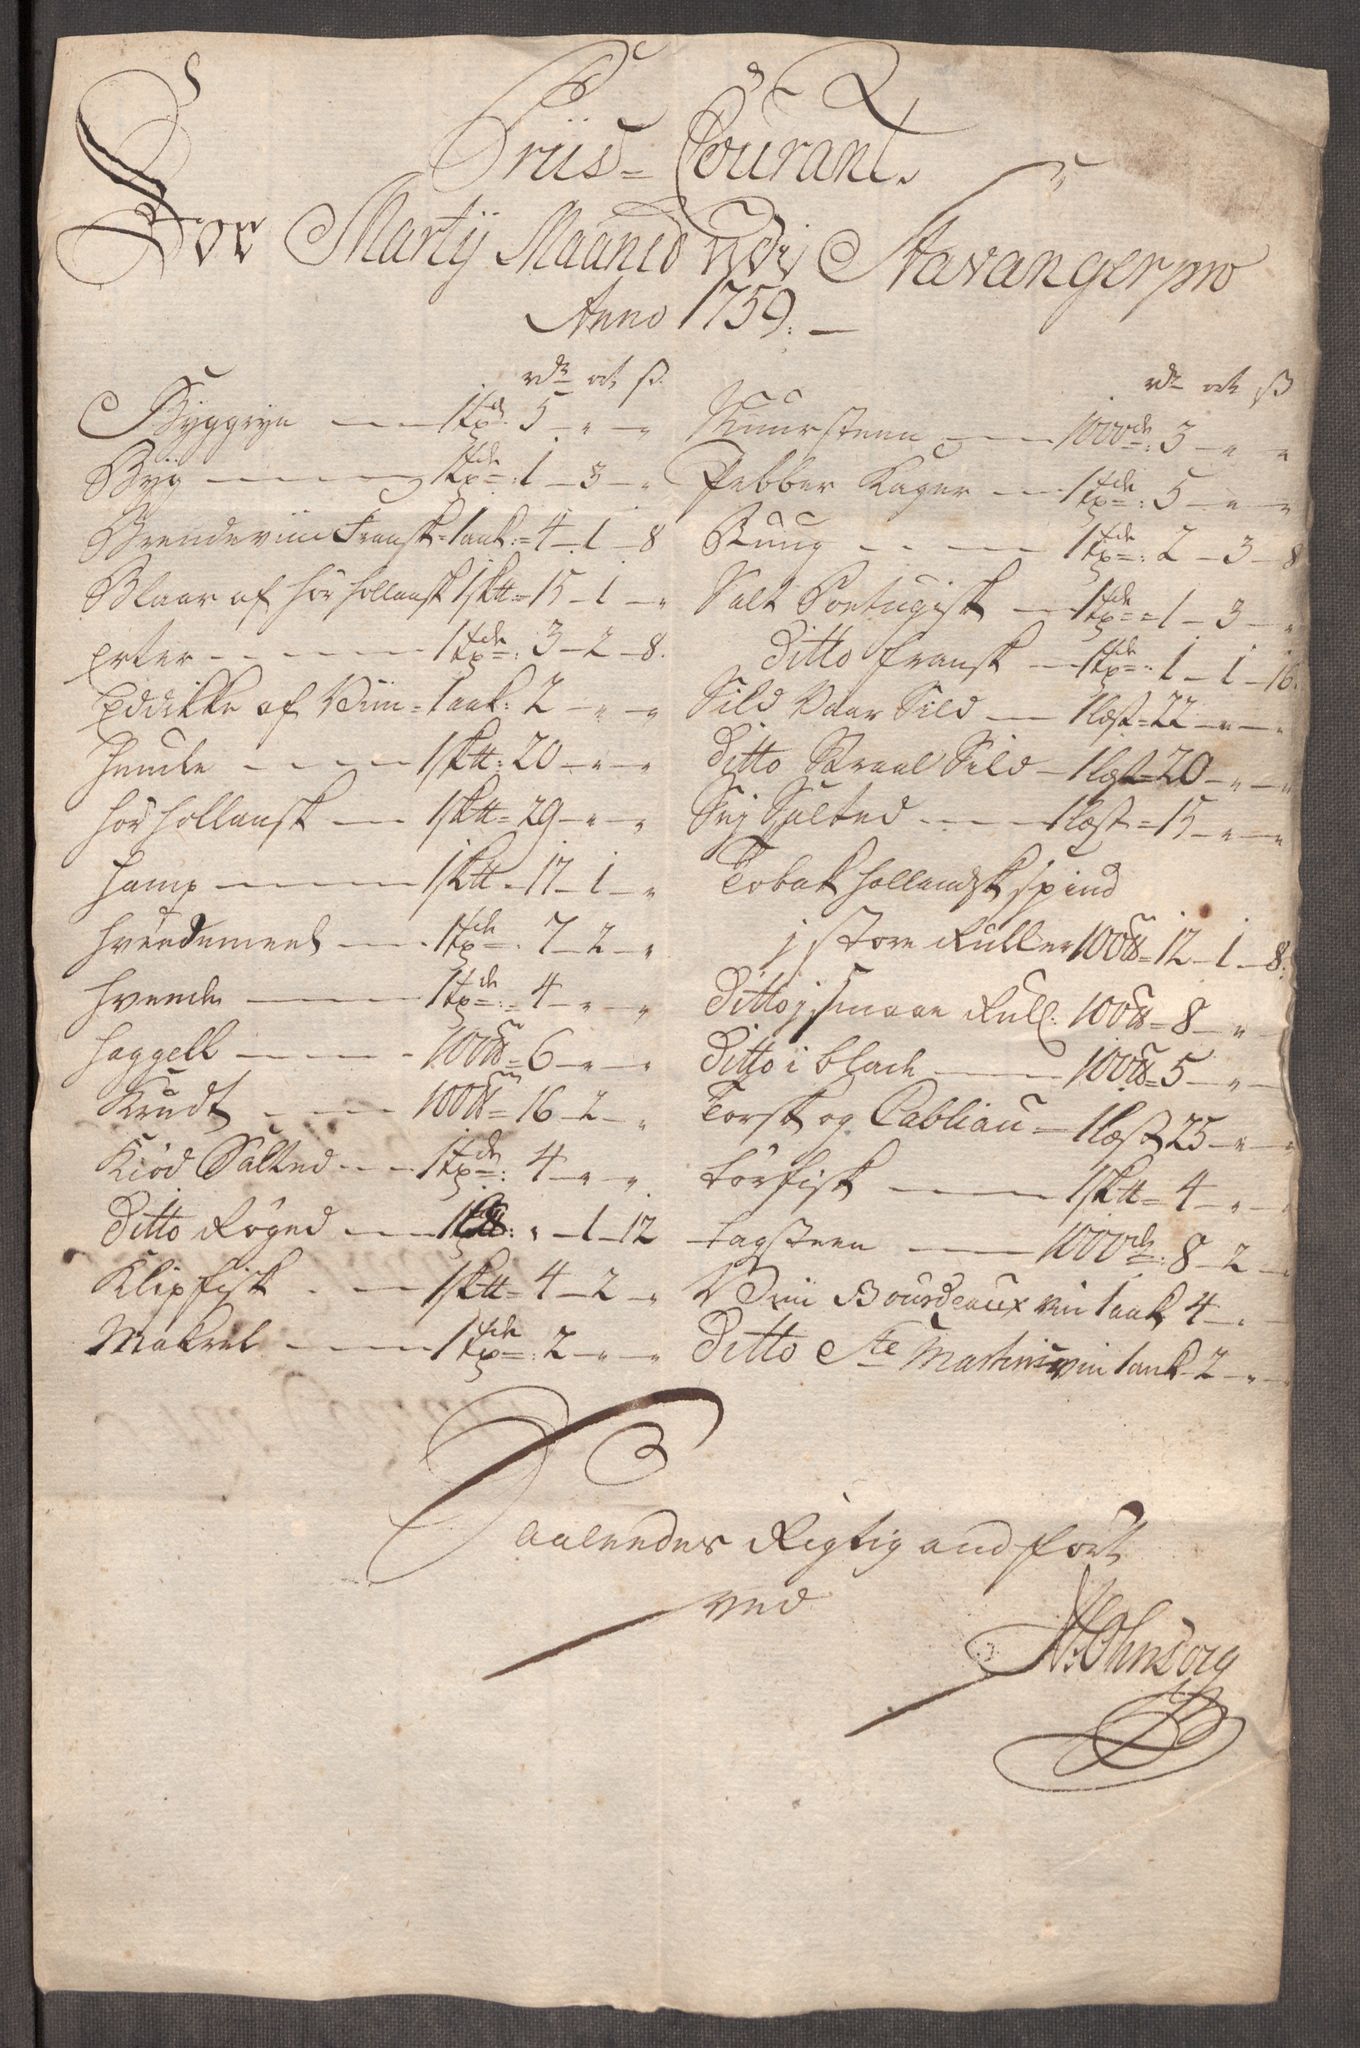 Priis-Courant
For Martij Maaned udi Stavanger pro
Anno 1759.
rdr ort ß.
Byggryn 1 tde: 5 - " - "
Byg 1 tde: 1 - 3 - "
Brendeviin Fransk 1 ank: 4 - 1 - 8
Blaar af hør hollansk 1 sk℔ 15 - 1 - "
erter 1 tde: 3 - 2 - 8.
Eddikke af Viin 1 ank: 2 - " - "
Humle 1 sk℔: 20 - " - "
hør hollansk 1 sk℔ 29 - " - "
hamp 1 sk℔ 17 - 1 - "
hvedemeel 1 tde: 7 - 2 - "
hvede 1 tde: 4 - " - "
haggell 100 ℔ 6 - " - "
Krudt 100 ℔ 16 - 2 - "
Kiød Salted 1 tde: 4 - " - "
Ditto Røged " - 1 - 12
Klipfisk 1 sk℔ 4 - 2 - "
Makrel 1 tde: 2 - " - "
rdr ort ß
Muursteen 1000de: 3 - " - "
Pebber Kager 1 tde: 5 - " - "
Ruug 1 tde: 2 - 3 - 8
Salt Portugisk 1 tde 1 - 3 - "
Ditto fransk 1 tde: 1 - 1 - 16.
Sild Vaar Sild 1 læst 22 - " - "
Ditto Straal Sild 1 læst 20 - " - "
Sej Salted 1 læst 15 - " - "
Tobak hollandsk spind
j store Ruller 100 ℔ 12 - 1 - 8.
Ditto j smaae Rull: 100 ℔ 8 - " -
Ditto i blade 100 ℔ 5 - " -
Torsk og Cabliau 1 læst 25 - " - "
törfisk 1 sk℔ 4 - " - "
tagsteen 1000de: 8 - 2 -
Viin Bourdeaux vin 1 ank 4 - " -
Ditto Ste Martins vin 1 ank 2 - " - "
Saaledes Rigtig andført
ved
Ohnsorg